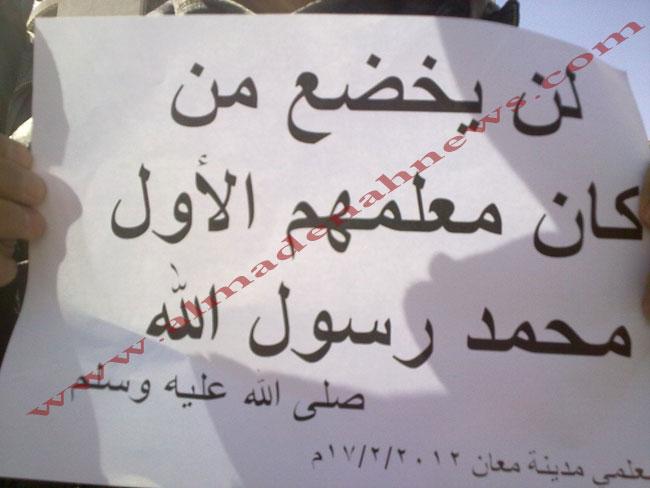 لن يخضع من
كان معلمهم الأول
محمد رسول الله
صلى الله عليه وسلم
معلمي مدينة معان ١٧/٢/٢٠١٢م
www.almadenahnews.com